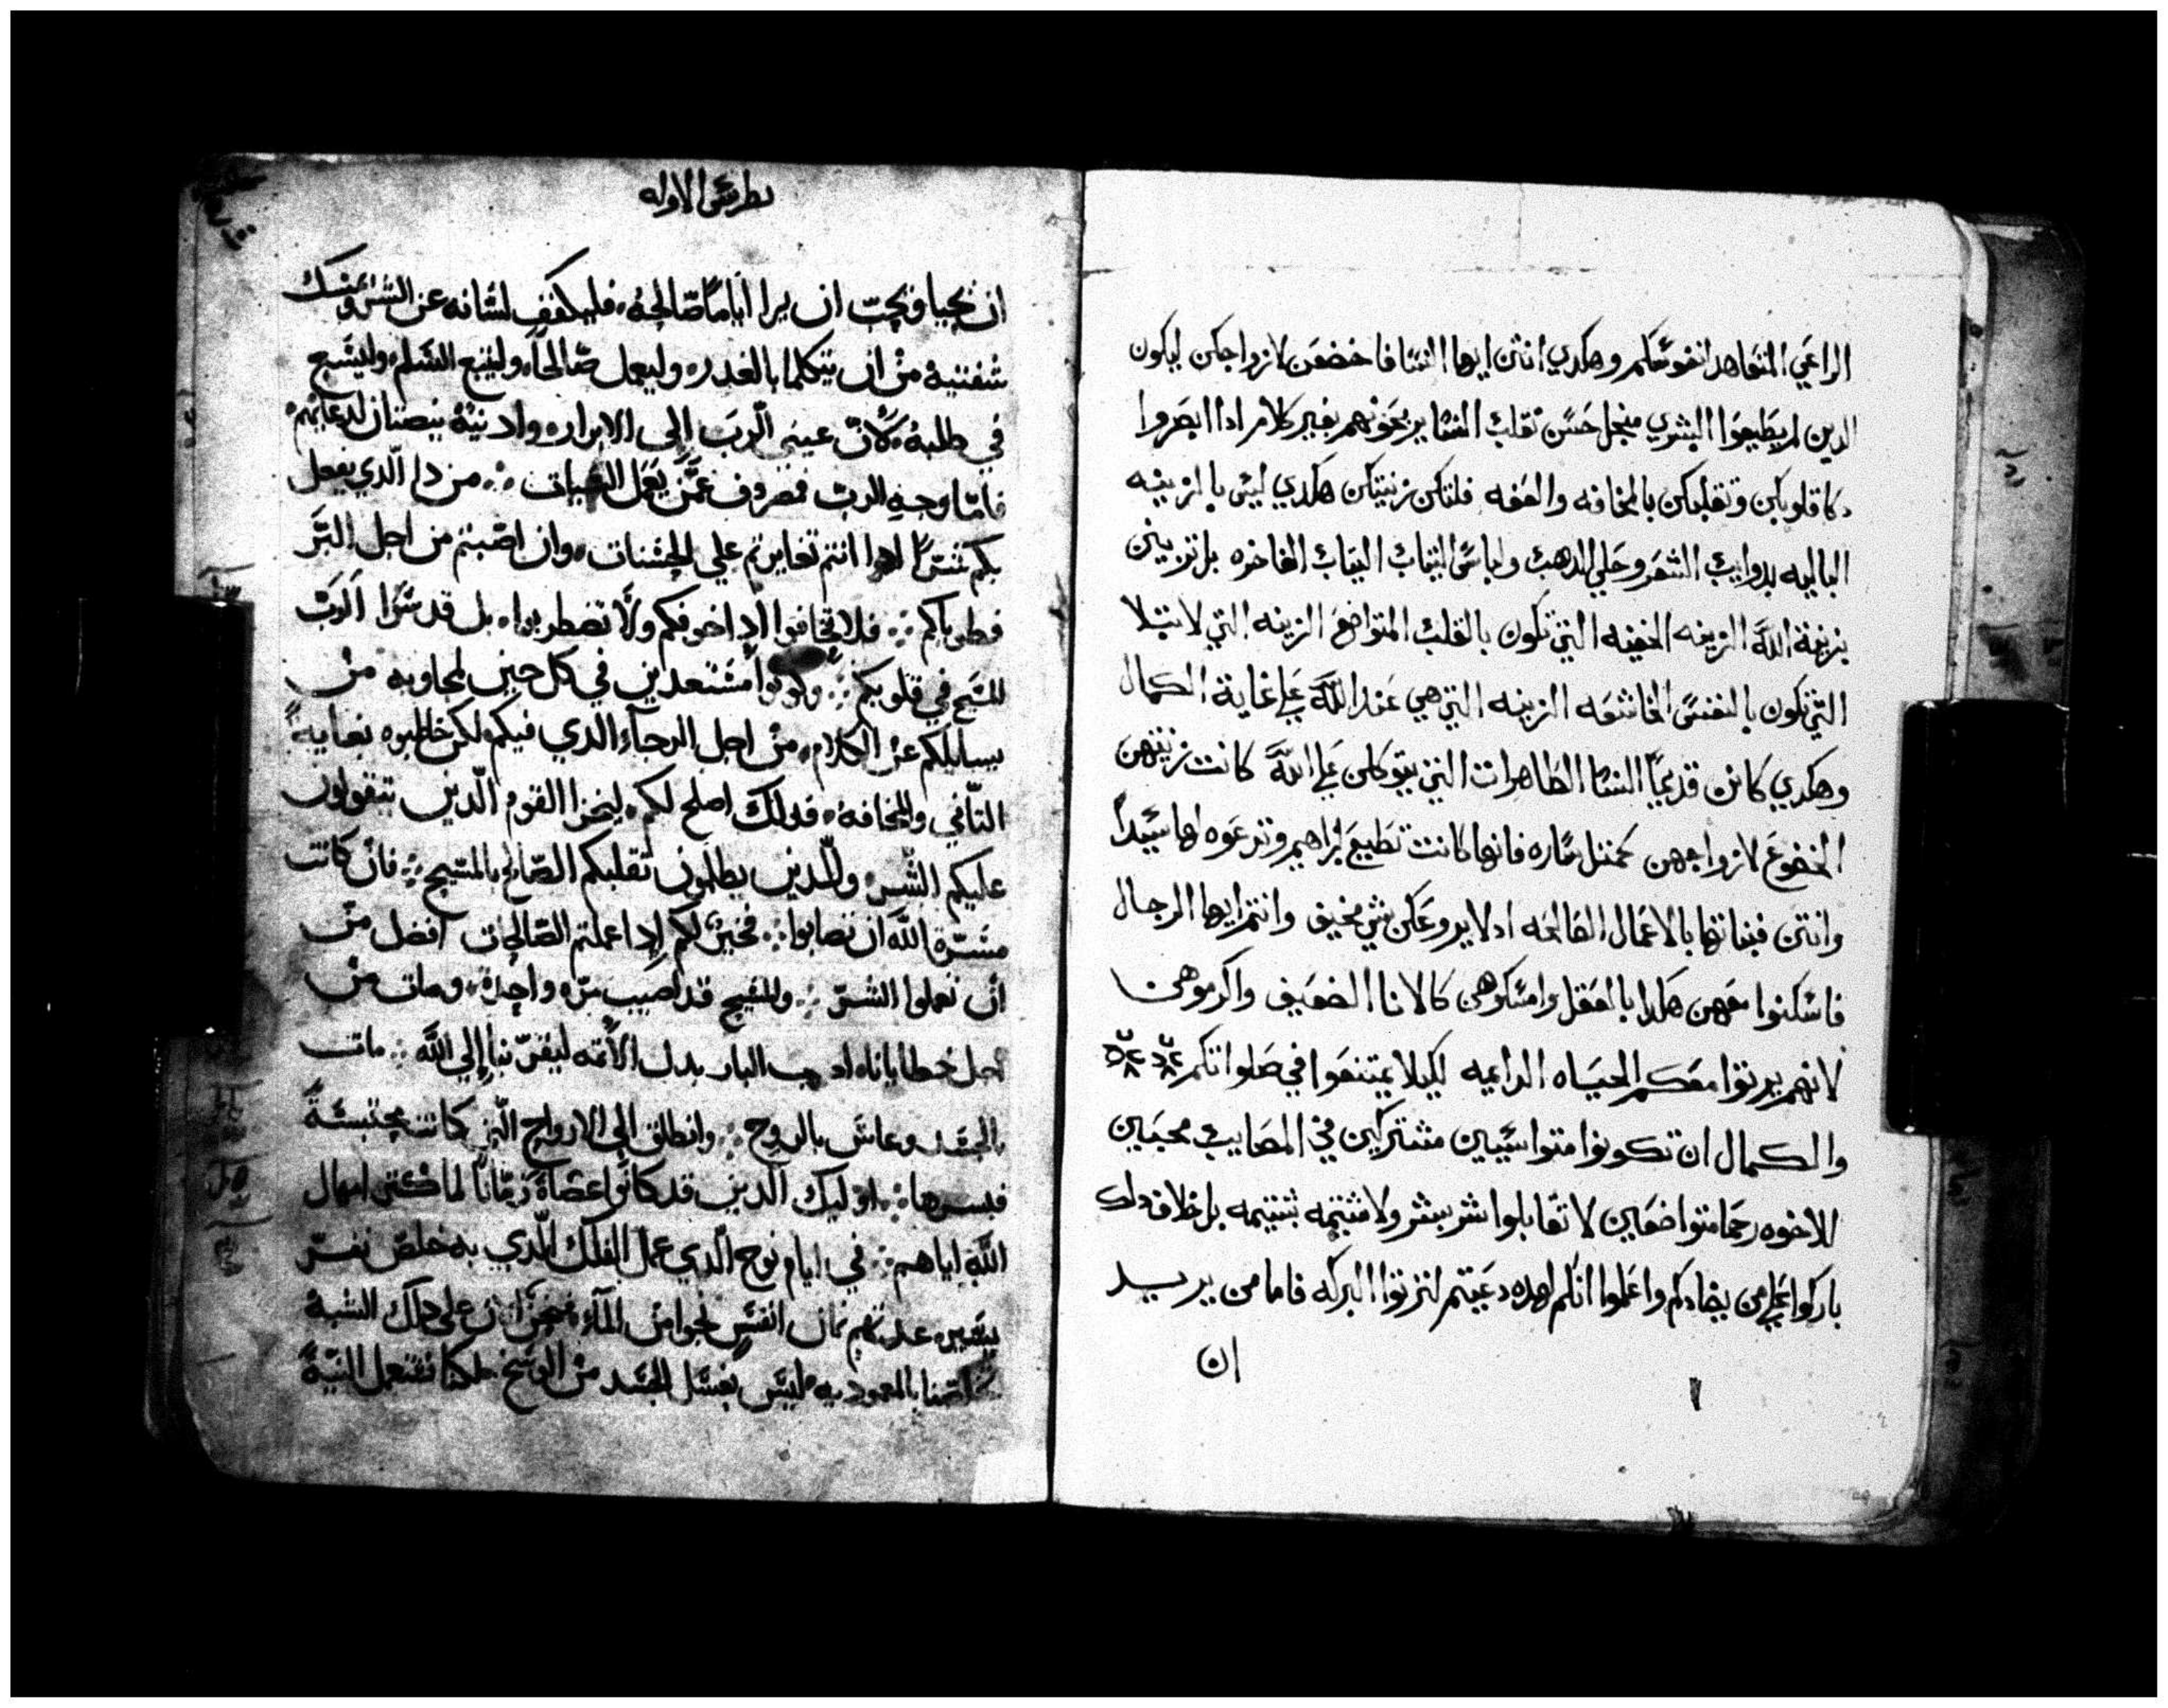 الراعي المتعاهد انفوسكم وهكدي انتن ايها النسا فاخضعن لازواجكن ليكون
الدين لم يطيعوا البشري منجل حسن تقلب النسا يربحونهم بغير كلام ادا ابصروا
دكا قلوبكن وتقلبكن بالمخافه والعفه فلتكن زينتكن هكدي ليس بالزينه
الباليه بدوايب الشعر وحلي الدهب ولباس الثياب الفاخره بل تزينن
بزينة الله الزينه الخفيه التي تكون بالقلب المتواضع الزينه التي لا تبلا
التي تكون بالنفس الخاشعه الزينه التي هي عند الله علي غاية الكمال
وهكدي كانن قديما النسا الطاهرات التي يتوكلن علي الله كانت زينتهن
الخضوع لازواجهن كمثل ساره فانها كانت تطيع ابراهيم وتدعوه لها سيدا
وانتن فبناتها بالاعمال الصالحه اد لا يروعكن شي مخيف وانتم ايها الرجال
فاسكنوا معهن هكدا بالعقل وامسكوهن كالانا الضعيف واكرموهن
لانهم يرتوا معكم الحياه الدايميه لكيلا يمتنعوا في صلواتكم
والكمال ان تكونوا متواسيين مشتركين في المصايب محبين
للاخوه رحما متواضعين لا تقابلوا شر بشر ولا شتيمه بشتيمه بل خلاف دلك
باركوا علي من يضادكم واعلموا انكم لهده دعيتم لترتوا البركه فاما من يريد
ان
بطرس الاوله
ان يحيا ويحب ان يرا اياما صالحه، فليكفف لسانه عن الشر ويمسك
شفتيه من ان يتكلما بالغدر، وليعمل صالحا، وليتبع السلم، وليسع
في طلبه، لان عيني الرب الي الابرار، وادنيه ينصتان لدعايهم،
فاما وجه الرب فمصروف عمن يعمل السيات ∴ من دا الدي يفعل
بكم شرا ادا انتم تغايرتم علي الحسنات، وان اصبتم من اجل البر
فطوباكم ∴ فلا تخافوا اداخوفكم ولا تضطربوا، بل قدسوا الرب
المسيح في قلوبكم ∴ وكونوا مستعدين في كل حين لمجاوبه من
يسايلكم عن الكلام، من اجل الرجاء الدي فيكم، لكن خاطبوه بغاية
التاني والمخافة، فدلك اصلح لكم، ليخزا القوم الدين يتقولون
عليكم الشر، والدين يظلمون تقلبكم الصالح بالمسيح ∴ فان كانت
مسرة الله ان تصابوا ∴ فخير لكم ادا عملتم الصالحات افضل من
ان تعملوا الشر ∴ والمسيح قد اصيب مره واحدة، ومات من
اجل خطايانا، البار بدل الاتمه ليقربنا الي الله ∴ مات
بالجسد وعاش بالروح ∴ وانطلق الي الارواح التي كانت محتبسة
فبشرها ∴ اوليك الدين قد كانوا عصاة زمانا لما كتر امهال
الله اياهم ∴ في ايام نوح الدي عمل الفلك الدي به خلص نفر
يسير، عدتهم تمان انفس نجوا من الماء، فنحن الان علي دلك الشبه
خلصنا بالمعموديه، ليس بغسل الجسد من الوسخ هكدا نفتعل النية